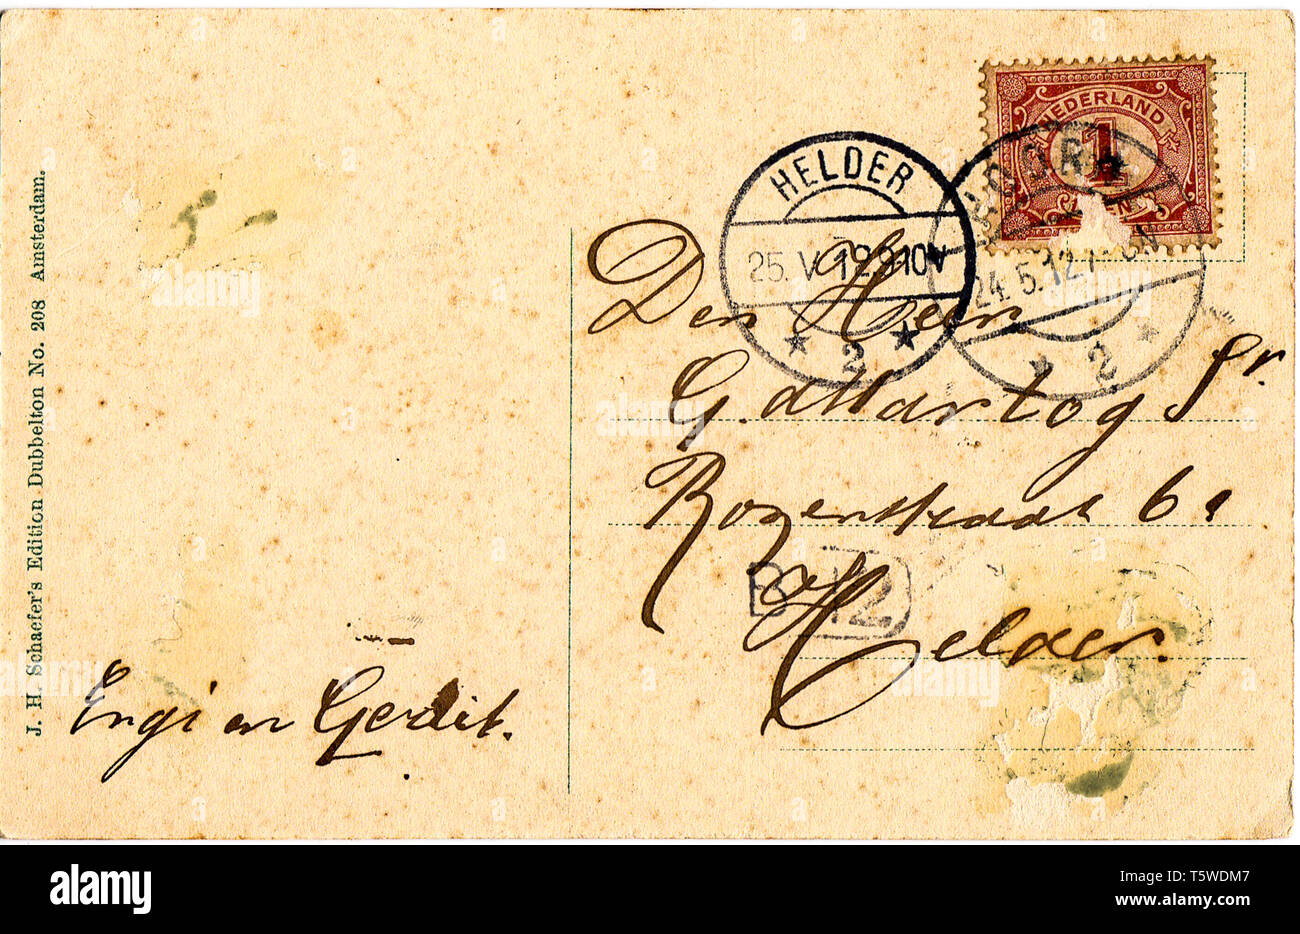 J. H. Schaefer's Edition Dubbelton No. 208 Amsterdam.
NEDERLAND
1
CENT
HELDER
25. V. 12 9-10V
2
HOORN
24.5.12
2
Den Heer
G. d Hartog Sr.
Rozenstraat 61
Helder.
B 12
Engi en Gerrit.
alamy
Image ID: T5WDM7
www.alamy.com